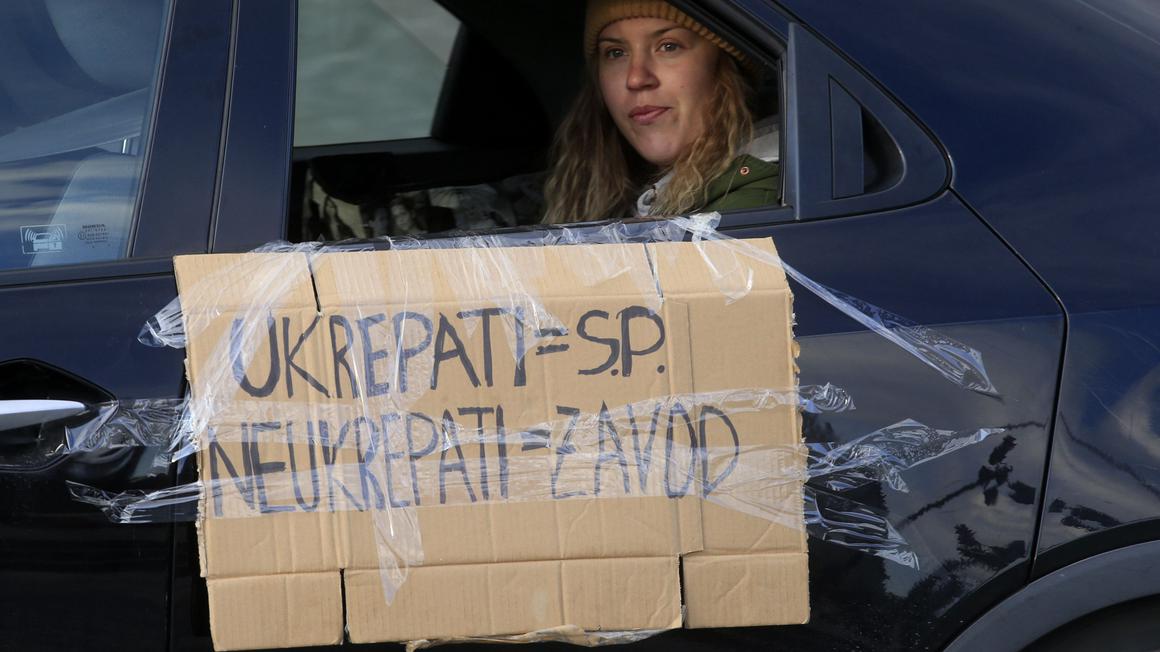 UKREPATI=S.P.
NEUKREPATI=ZAVOD
HONDA